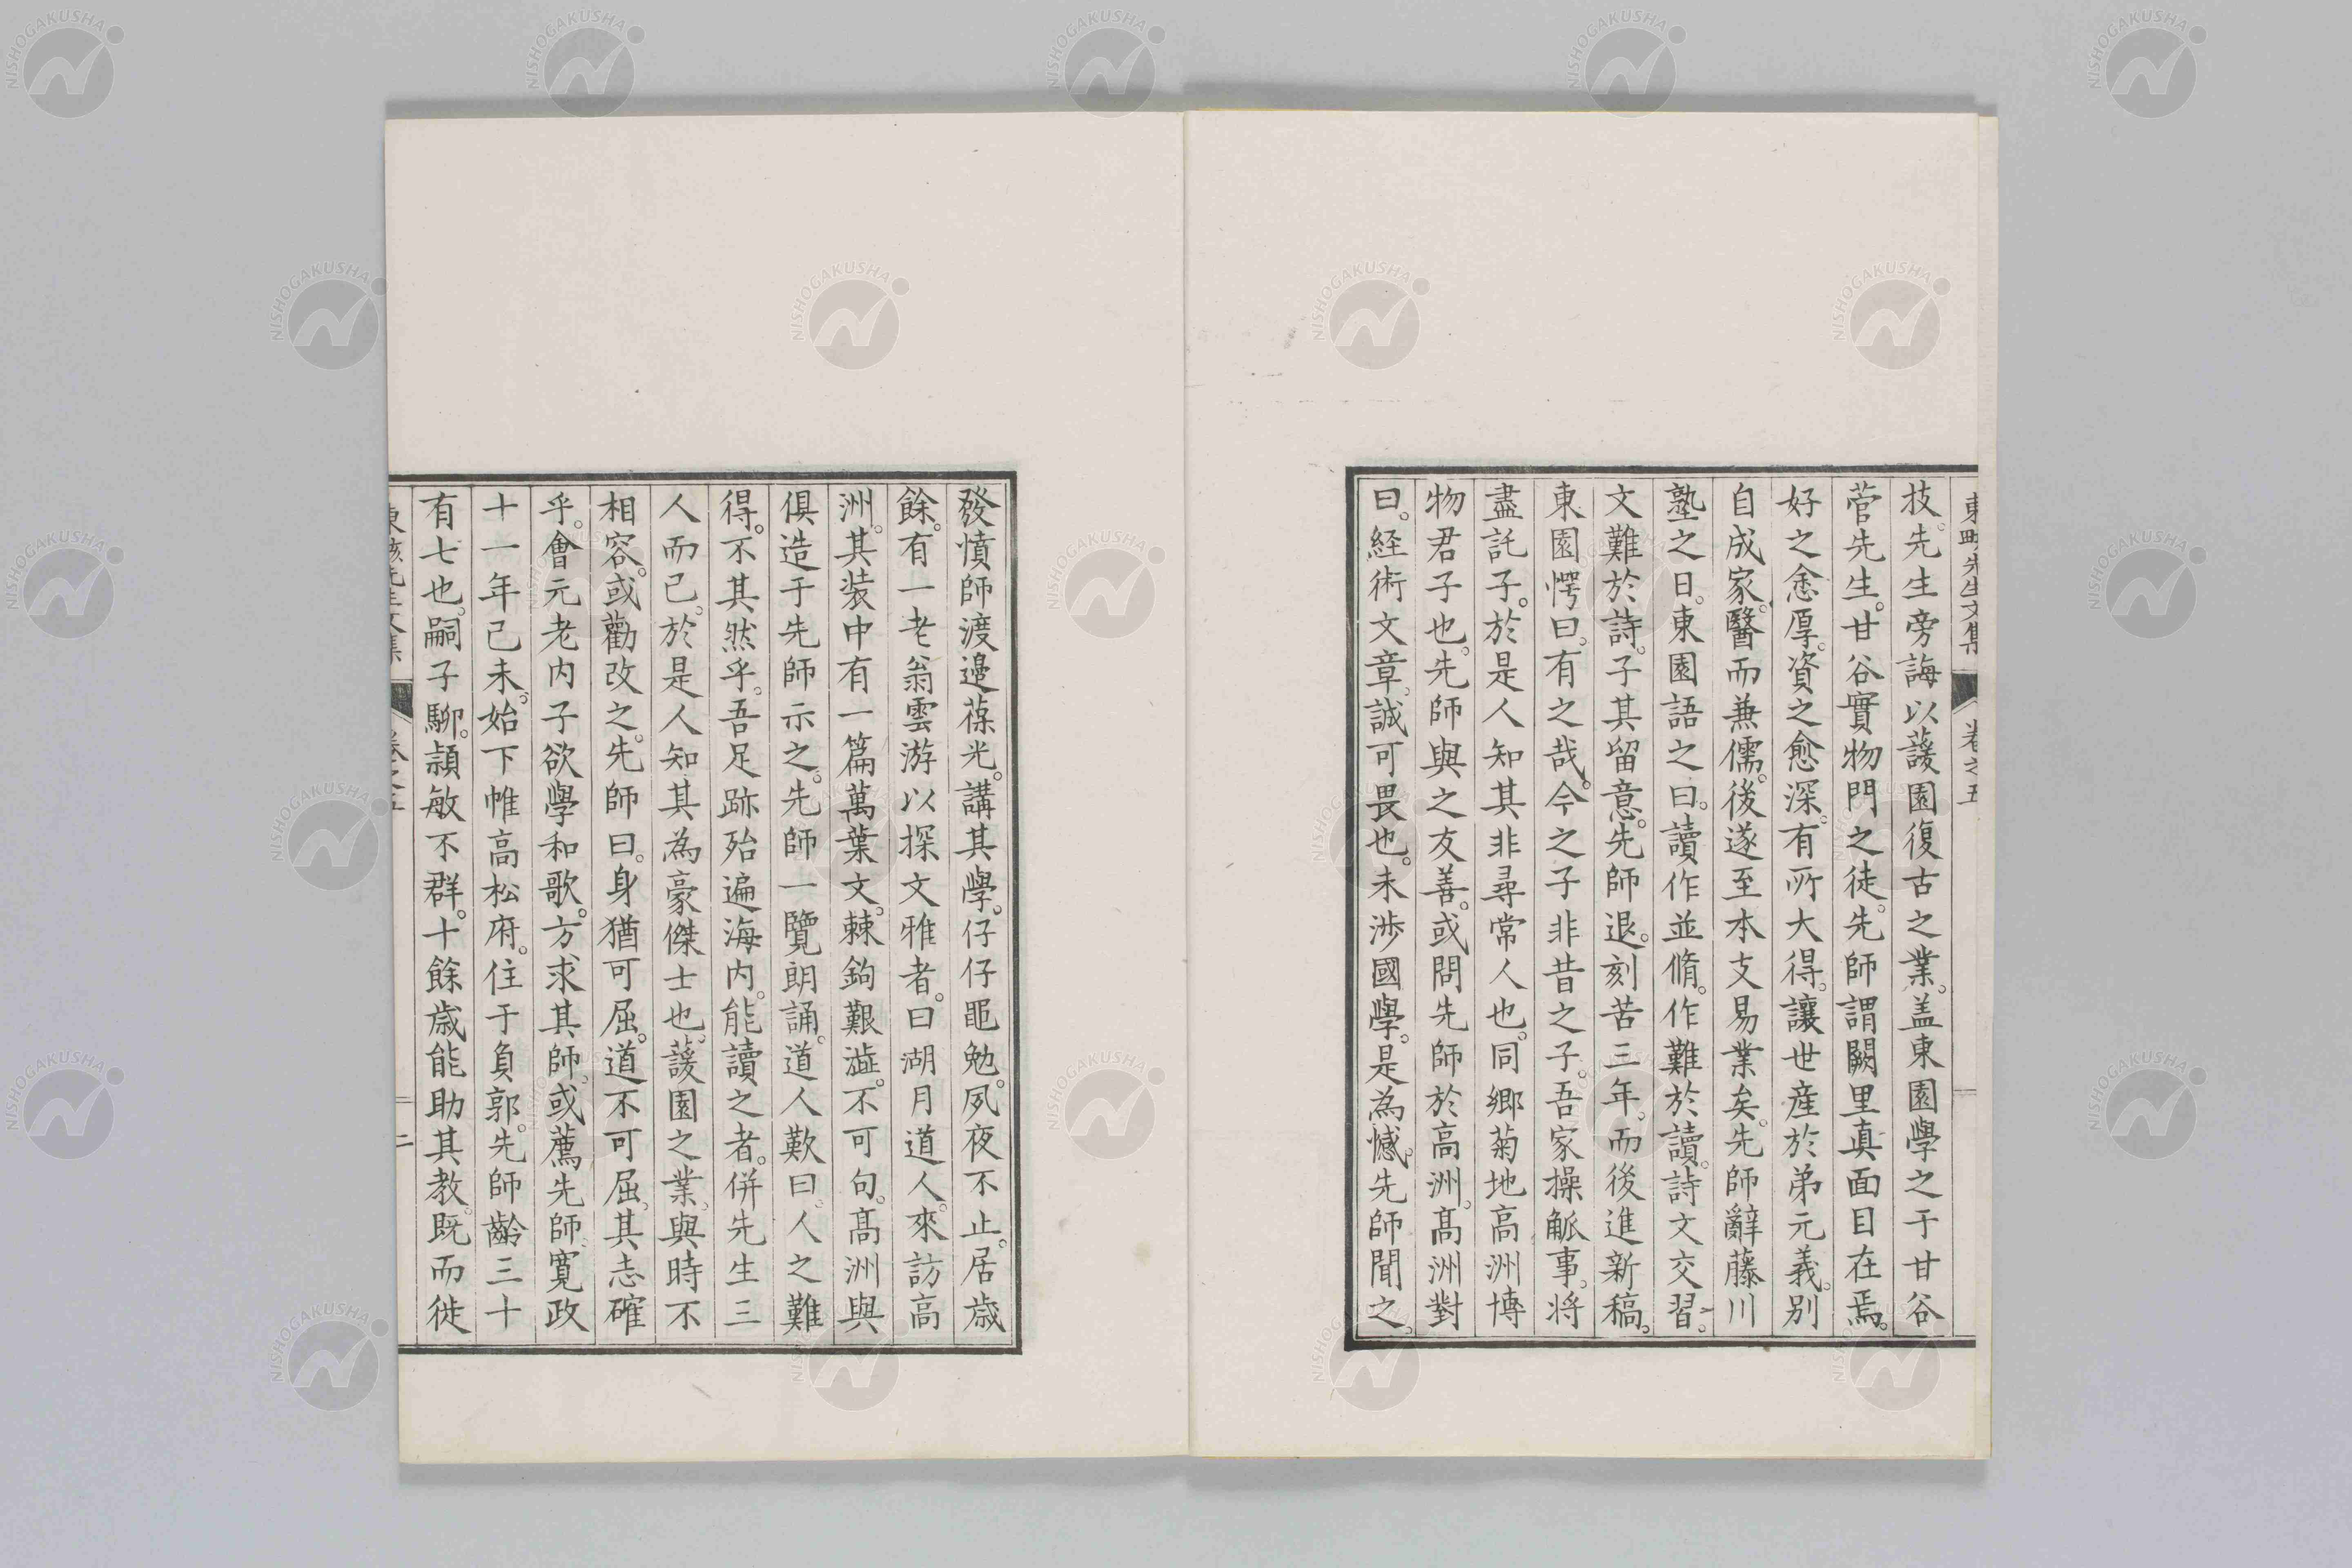 技。先生旁誨以蘐園復古之業。盖東園學之于甘谷
菅先生。甘谷實物門之徒。先師謂闕里真面目在焉。
好之悆厚。資之愈深。有所大得。讓世産於弟元義。别
自成家。醫而兼儒。後遂至本支易業矣。先師辭藤川
塾之日。東園語之曰。讀作並脩。作難於讀。詩文交習。
文難於詩。子其留意。先師退。刻苦三年。而後進新稿。
東園愕曰。有之哉。今之子非昔之子。吾家操觚事。将
盡託子。於是人知其非尋常人也。同郷菊地高洲博
物君子也。先師與之友善。或問先師於高洲。髙洲對
曰。経術文章。誠可畏也。未渉國學。是為憾。先師聞之。
發憤師渡邉葆光。講其學。仔仔黽勉。夙夜不止。居歳
餘。有一老翁雲游以探文雅者。曰湖月道人。來訪高
洲。其装中有一篇萬葉文。棘鉤艱澁。不可句。髙洲與
俱造于先師示之。先師一覽朗誦。道人歎曰。人之難
得。不其然乎。吾足跡殆遍海内。能讀之者。併先生三
人而已。於是人知其為豪傑士也。蘐園之業。與時不
相容。或勸改之。先師曰。身猶可屈。道不可屈。其志確
乎。會元老内子欲學和歌。方求其師。或薦先師。寛政
十一年己未。始下帷高松府。住于負郭。先師齡三十
有七也。嗣子駠。頴敏不群。十餘歳能助其教。既而徙
東畡先生文集
卷之五
二
NISHOGAKUSHA